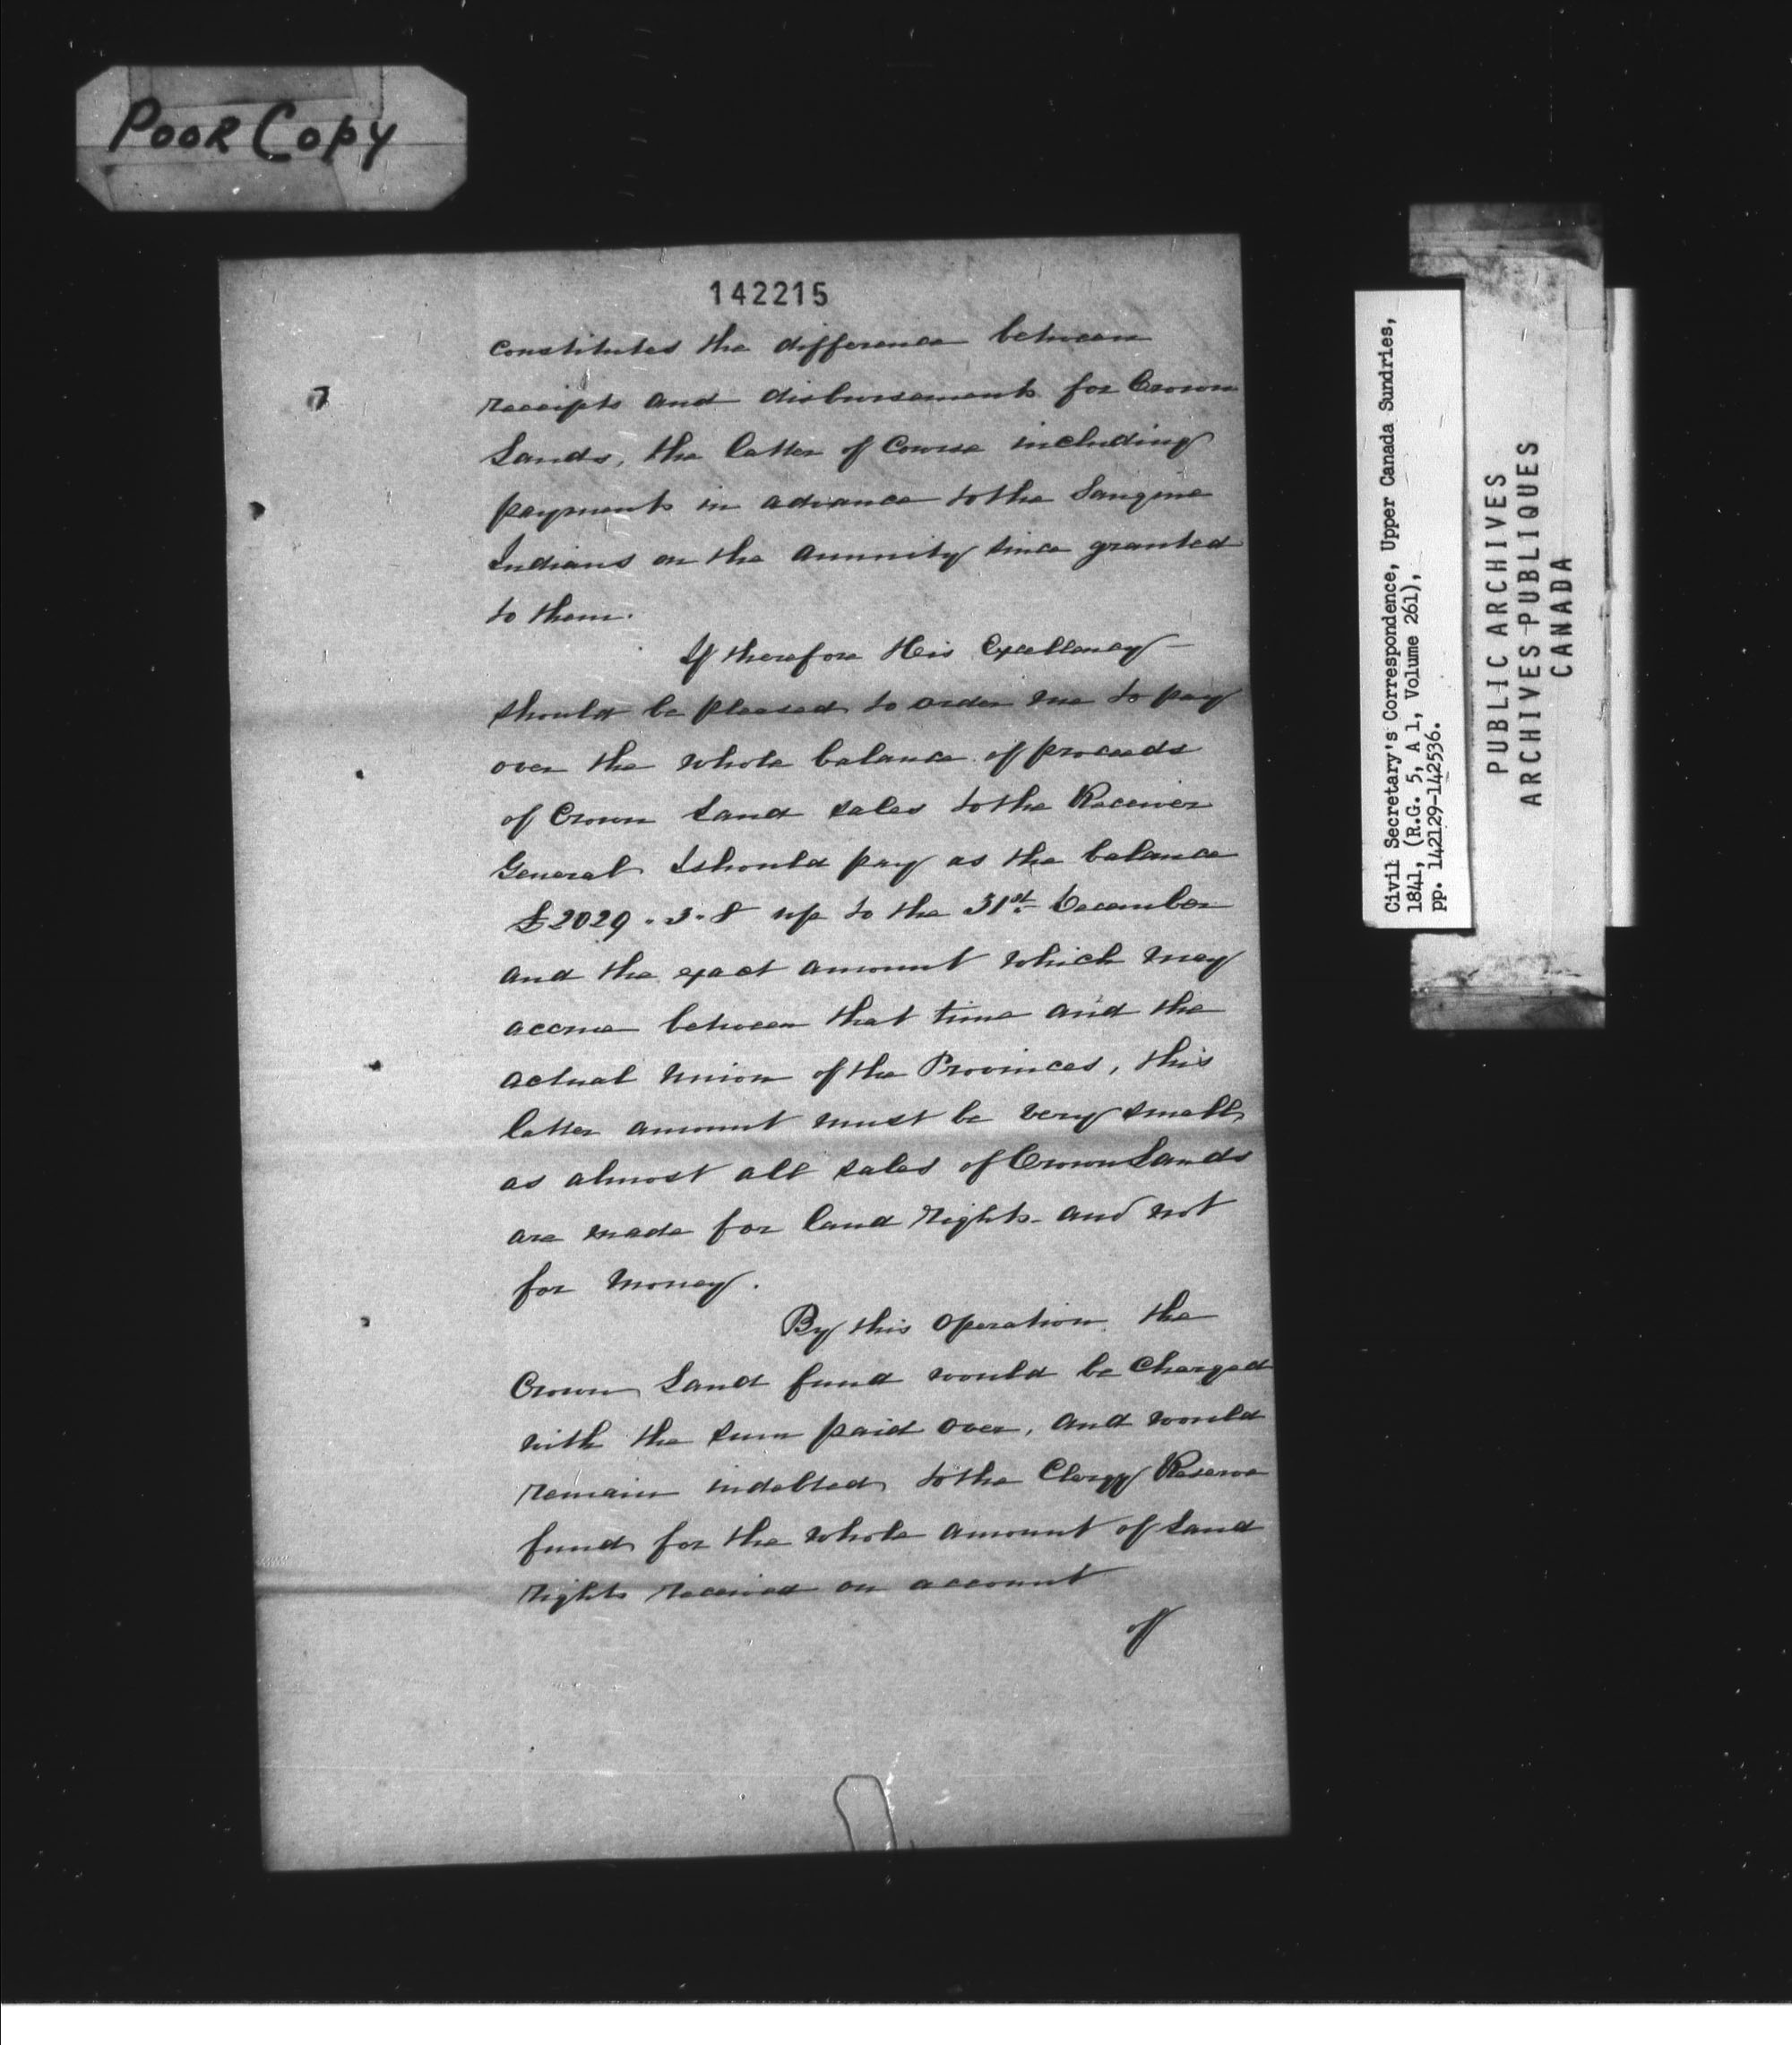 Poor Copy
142215
7
constitutes the difference between
receipts and disbursements for Crown
Lands, the latter of Course including
payments in advance to the Saugine
Indians on the annuity since granted
to them.
If therefore His Excellency
should be pleased to order me to pay
over the whole balance of proceeds
of Crown Land sales to the Receiver
General I should pay as the balance
£2029.3.8 up to the 31st December
and the exact amount which may
accrue between that time and the
actual union of the Provinces, this
latter amount must be very small,
as almost all sales of Crown Lands
are made for land rights and not
for money.
By this operation the
Crown Land fund would be charged
with the sum paid over, and would
remain indebted to the Clergy Reserve
fund for the whole amount of Land
rights received on account
of
Civil Secretary's Correspondence, Upper Canada Sundries,
1841, (R.G. 5, A 1, Volume 261),
pp. 142129-142536.
PUBLIC ARCHIVES
ARCHIVES PUBLIQUES
CANADA